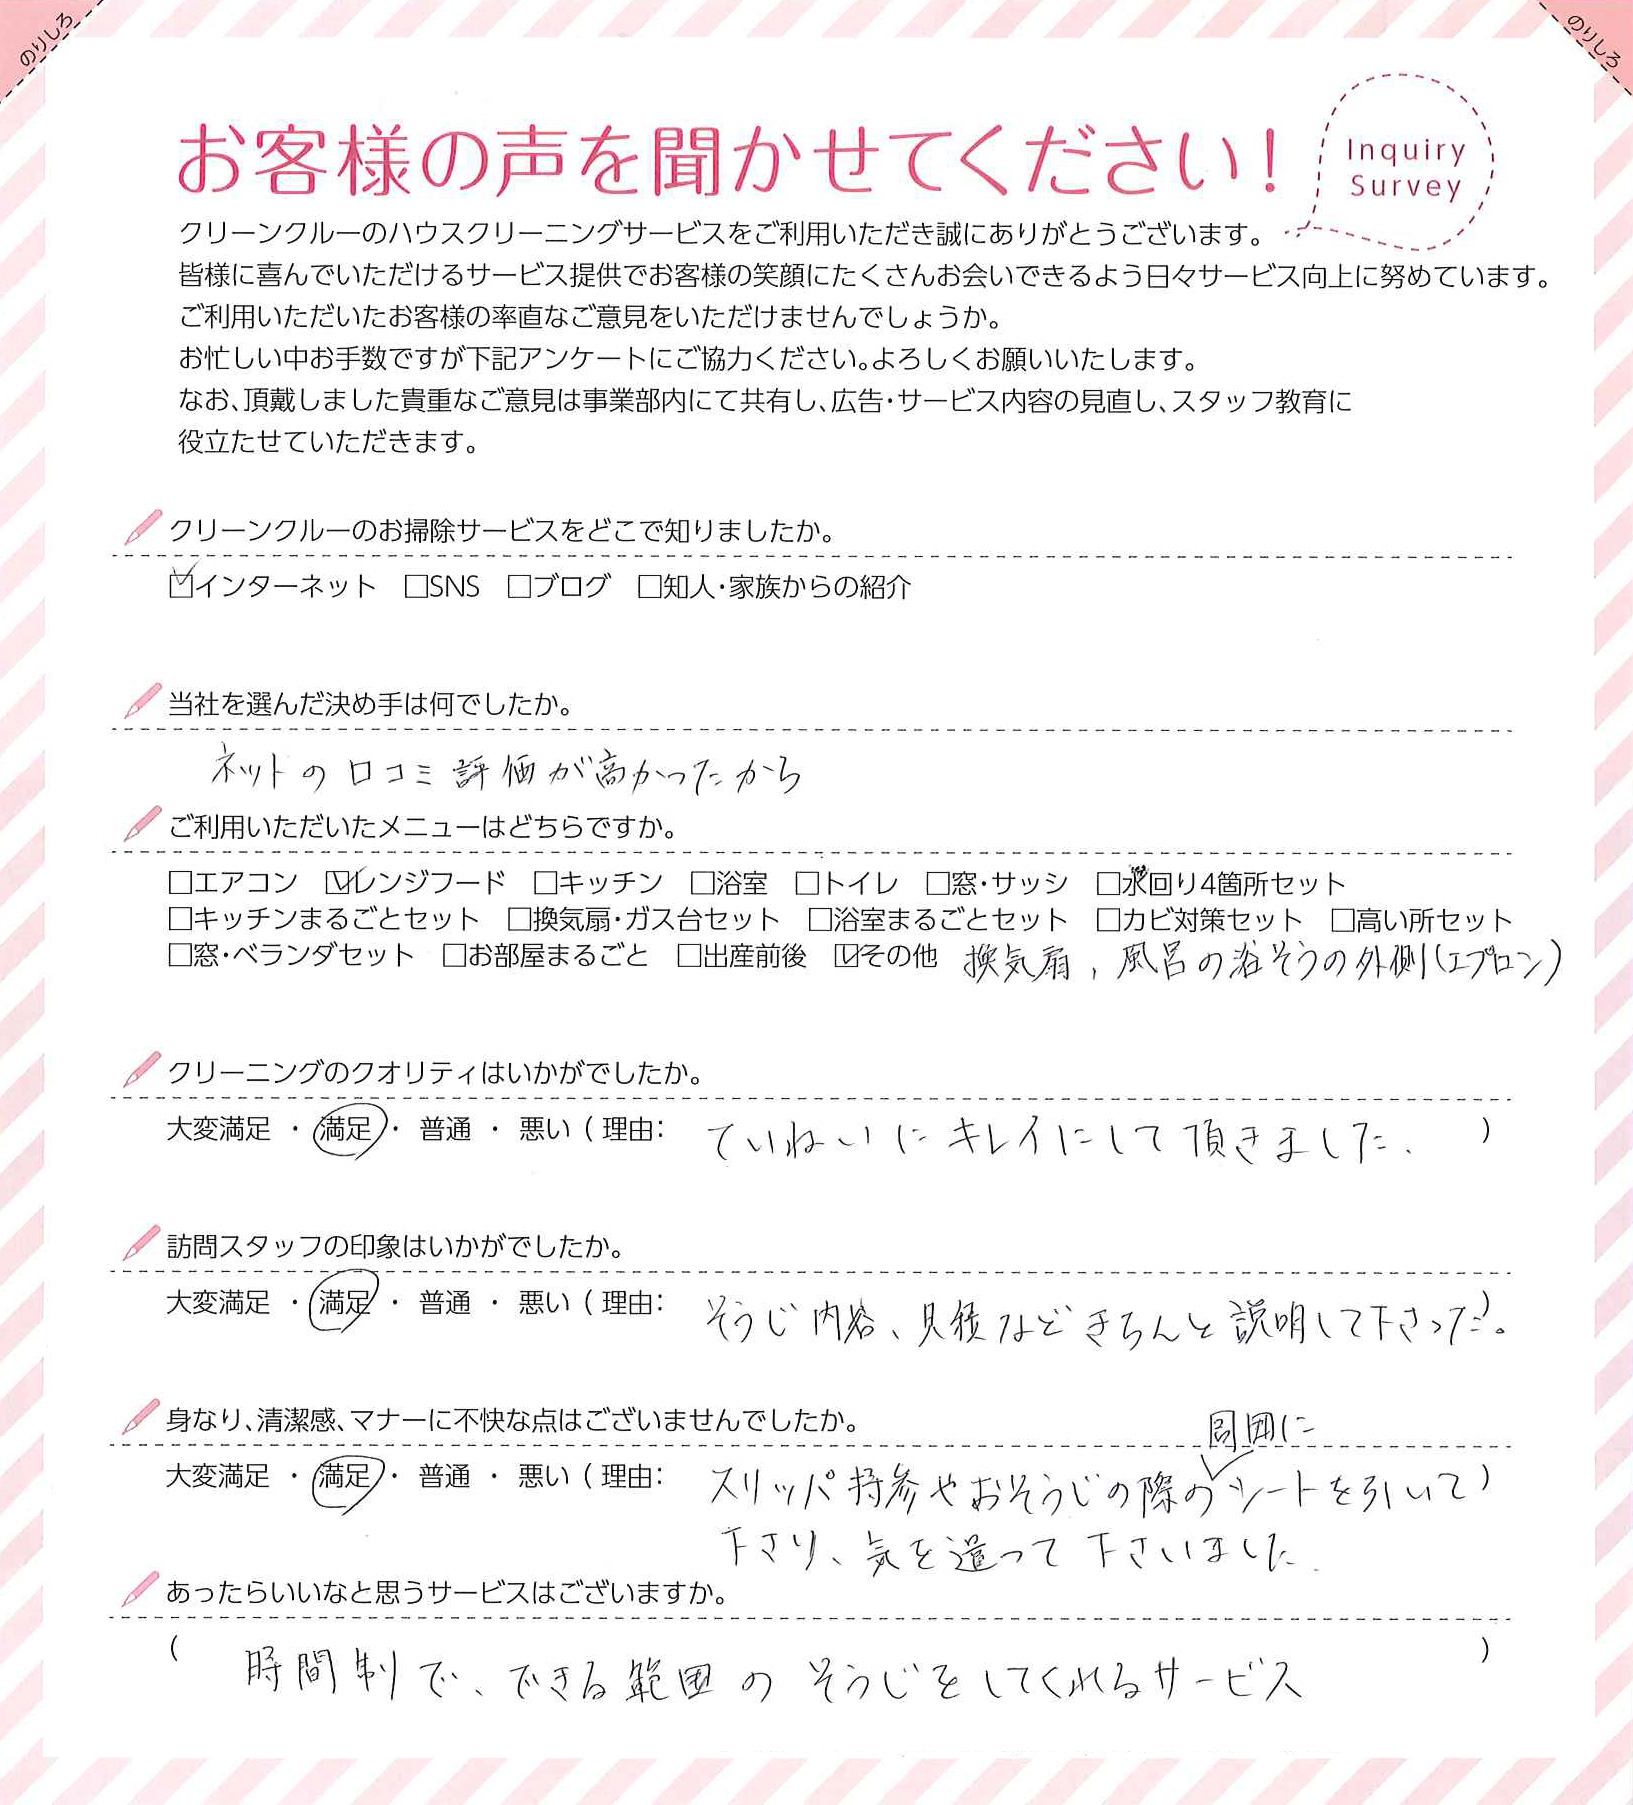 のりしろ
のりしろ
お客様の声を聞かせてください！
Inquiry
Survey
クリーンクルーのハウスクリーニングサービスをご利用いただき誠にありがとうございます。
皆様に喜んでいただけるサービス提供でお客様の笑顔にたくさんお会いできるよう日々サービス向上に努めています。
ご利用いただいたお客様の率直なご意見をいただけませんでしょうか。
お忙しい中お手数ですが下記アンケートにご協力ください。よろしくお願いいたします。
なお、頂戴しました貴重なご意見は事業部内にて共有し、広告・サービス内容の見直し、スタッフ教育に
役立たせていただきます。
クリーンクルーのお掃除サービスをどこで知りましたか。
☑インターネット □SNS □ブログ □知人・家族からの紹介
当社を選んだ決め手は何でしたか。
ネットの口コミ評価が高かったから
ご利用いただいたメニューはどちらですか。
□エアコン ☑レンジフード □キッチン □浴室 □トイレ □窓・サッシ □水回り4箇所セット
□キッチンまるごとセット □換気扇・ガス台セット □浴室まるごとセット □カビ対策セット □高い所セット
□窓・ベランダセット □お部屋まるごと □出産前後 ☑その他 換気扇、風呂の浴そうの外側(エプロン)
クリーニングのクオリティはいかがでしたか。
大変満足 ・ 満足 ・ 普通 ・ 悪い ( 理由： ていねいにキレイにして頂きました. )
訪問スタッフの印象はいかがでしたか。
大変満足 ・ 満足 ・ 普通 ・ 悪い ( 理由： そうじ内容、見積などきちんと説明して下さった。)
身なり、清潔感、マナーに不快な点はございませんでしたか。
周囲に
大変満足 ・ 満足 ・ 普通 ・ 悪い ( 理由： スリッパ持参やおそうじの際のシートを引いて )
下さり、気を遣って下さいました.
あったらいいなと思うサービスはございますか。
( 時間制で、できる範囲のそうじをしてくれるサービス )